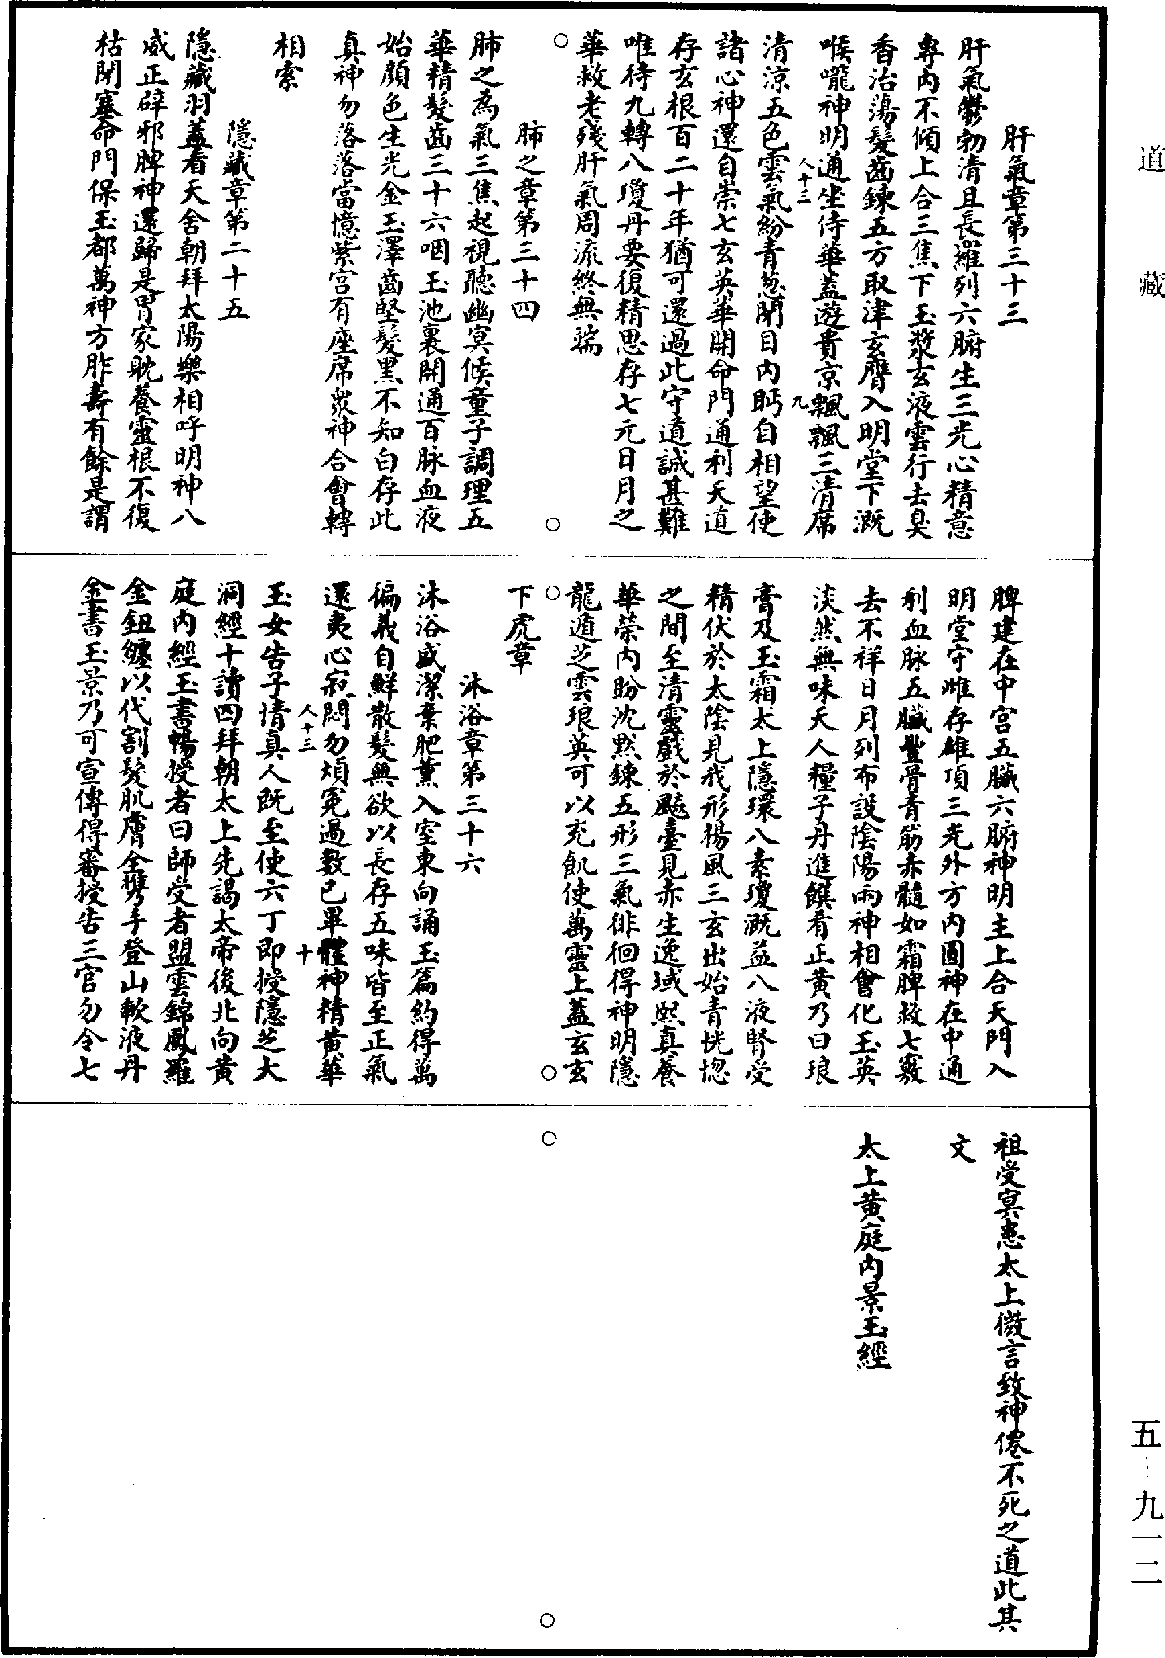 道藏
肝氣章第三十三
肝氣鬱勃清且長羅列六腑生三光心精意
專內不傾上合三焦下玉漿玄液雲行去臭
香治蕩髮齒鍊五方取津玄膺入明堂下溉
喉嚨神明通坐侍華蓋遊貴京飄飄三清席
人十三
九
清涼五色雲氣紛青葱閉目內眄自相望使
諸心神還自崇七玄英華開命門通利天道
存玄根百二十年猶可還過此守道誠甚難
唯待九轉八瓊丹要復精思存七元日月之
華救老殘肝氣周流終無端
肺之章第三十四
肺之爲氣三焦起視聽幽冥候童子調理五
華精髮齒三十六咽玉池裏開通百脉血液
始顏色生光金玉澤齒堅髮黑不知白存此
真神勿落落當憶紫宮有座席衆神合會轉
相索
隱藏章第二十五
隱藏羽蓋看天舍朝拜太陽樂相呼明神八
威正辟邪脾神還歸是胃家耽養靈根不復
枯閉塞命門保玉都萬神方胙壽有餘是謂
脾建在中宮五臟六腑神明主上合天門入
明堂守雌存雄頂三光外方內圓神在中通
利血脉五臟豐骨青筋赤髓如霜脾救七竅
去不祥日月列布設陰陽兩神相會化玉英
淡然無味天人糧子丹進饌肴正黃乃曰琅
膏及玉霜太上隱環八素瓊溉益八液腎受
精伏於太陰見我形揚風三玄出始青恍惚
之間至清靈戲於飈臺見赤生逸域熙真養
華榮內盼沈默鍊五形三氣徘徊得神明隱
龍遁芝雲琅英可以充飢使萬靈上蓋玄玄
下虎章
沐浴章第三十六
沐浴盛潔棄肥薰入室東向誦玉篇約得萬
偏義自鮮散髮無欲以長存五味皆至正氣
還夷心寂悶勿煩冤過數已畢體神精黃華
人十三
十
玉女告子情真人既至使六丁即授隱芝大
洞經十讀四拜朝太上先謁太帝後北向黃
庭內經玉書暢授者曰師受者盟雲錦鳳羅
金鈕纏以代割髮肌膚全攜手登山歃液丹
金書玉景乃可宣傳得審授告三官勿令七
祖受冥患太上微言致神僊不死之道此其
文
太上黃庭內景玉經
五‥九一二